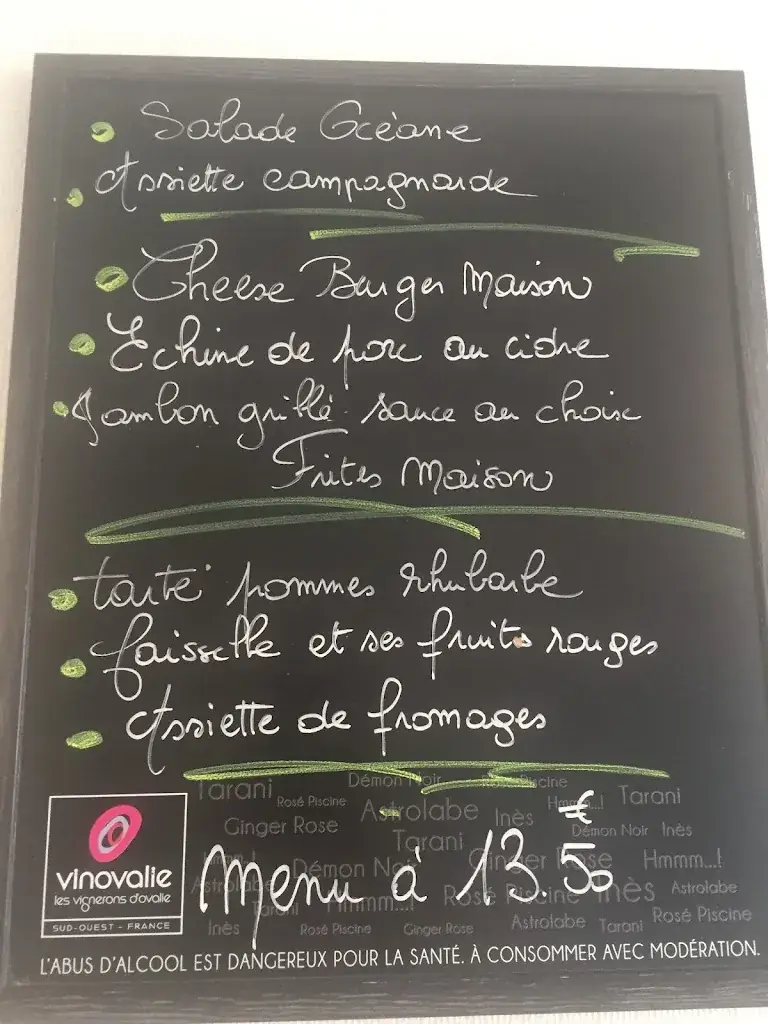 Salade Océane
Assiette campagnarde
Cheese Burger Maison
Echine de porc au cidre
Jambon grillé sauce au choix
Frites Maison
tarte pommes rhubarbe
faisselle et ses fruits rouges
Assiette de fromages
Tarani Démon Noir Rosé Piscine
Rosé Piscine Astrolabe Inès Hmmm...! Tarani
Ginger Rose Tarani Démon Noir Inès
Hmmm...! Démon Noir Ginger Rose Hmmm...!
Astrolabe Hmmm...! Rosé Piscine Inès Astrolabe
Tarani
Inès Rosé Piscine Ginger Rose Astrolabe Tarani Rosé Piscine
Menu à 13.50 €
vinovalie
les vignerons d'ovalie
SUD-OUEST - FRANCE
L'ABUS D'ALCOOL EST DANGEREUX POUR LA SANTÉ. À CONSOMMER AVEC MODÉRATION.